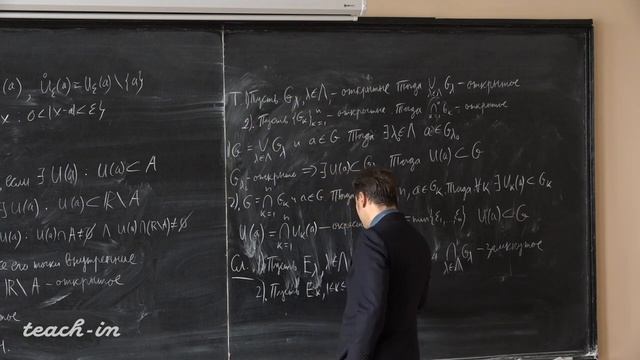 (a), U̇_ε(a) = U_ε(a) \ {a}
x : 0<|x-a|<ε}
если ∃ U(a) : U(a) ⊂ A
∃ U(a) : U(a) ⊂ ℝ\A
U(a) : U(a)∩A≠∅ ∧ U(a)∩(ℝ\A)≠∅
его точки внутренние
ℝ\A - открытое
Т. 1) Пусть G_λ, λ∈Λ, - открытые Тогда ∪_{λ∈Λ} G_λ - открытое
2). Пусть {G_k}_{k=1}^n - открытые. Тогда ∩_{k=1}^n G_k - открытое
1) G = ∪_{λ∈Λ} G_λ и a∈G Тогда ∃ λ_0∈Λ a∈G_{λ_0}
G_{λ_0} - открыто ⇒ ∃ U(a) ⊂ G Тогда U(a) ⊂ G
2). G = ∩_{k=1}^n G_k и a∈G n, a∈G_k Тогда ∀k ∃ U_k(a) ⊂ G_k
U(a) = ∩_{k=1}^n U_k(a) - = min{ε_1,...,ε} U(a) ⊂ G
Сл. 1) Пусть E_λ, λ∈Λ ∩_{λ∈Λ} - замкнутое
2). Пусть E_k, 1≤k≤
teach-in